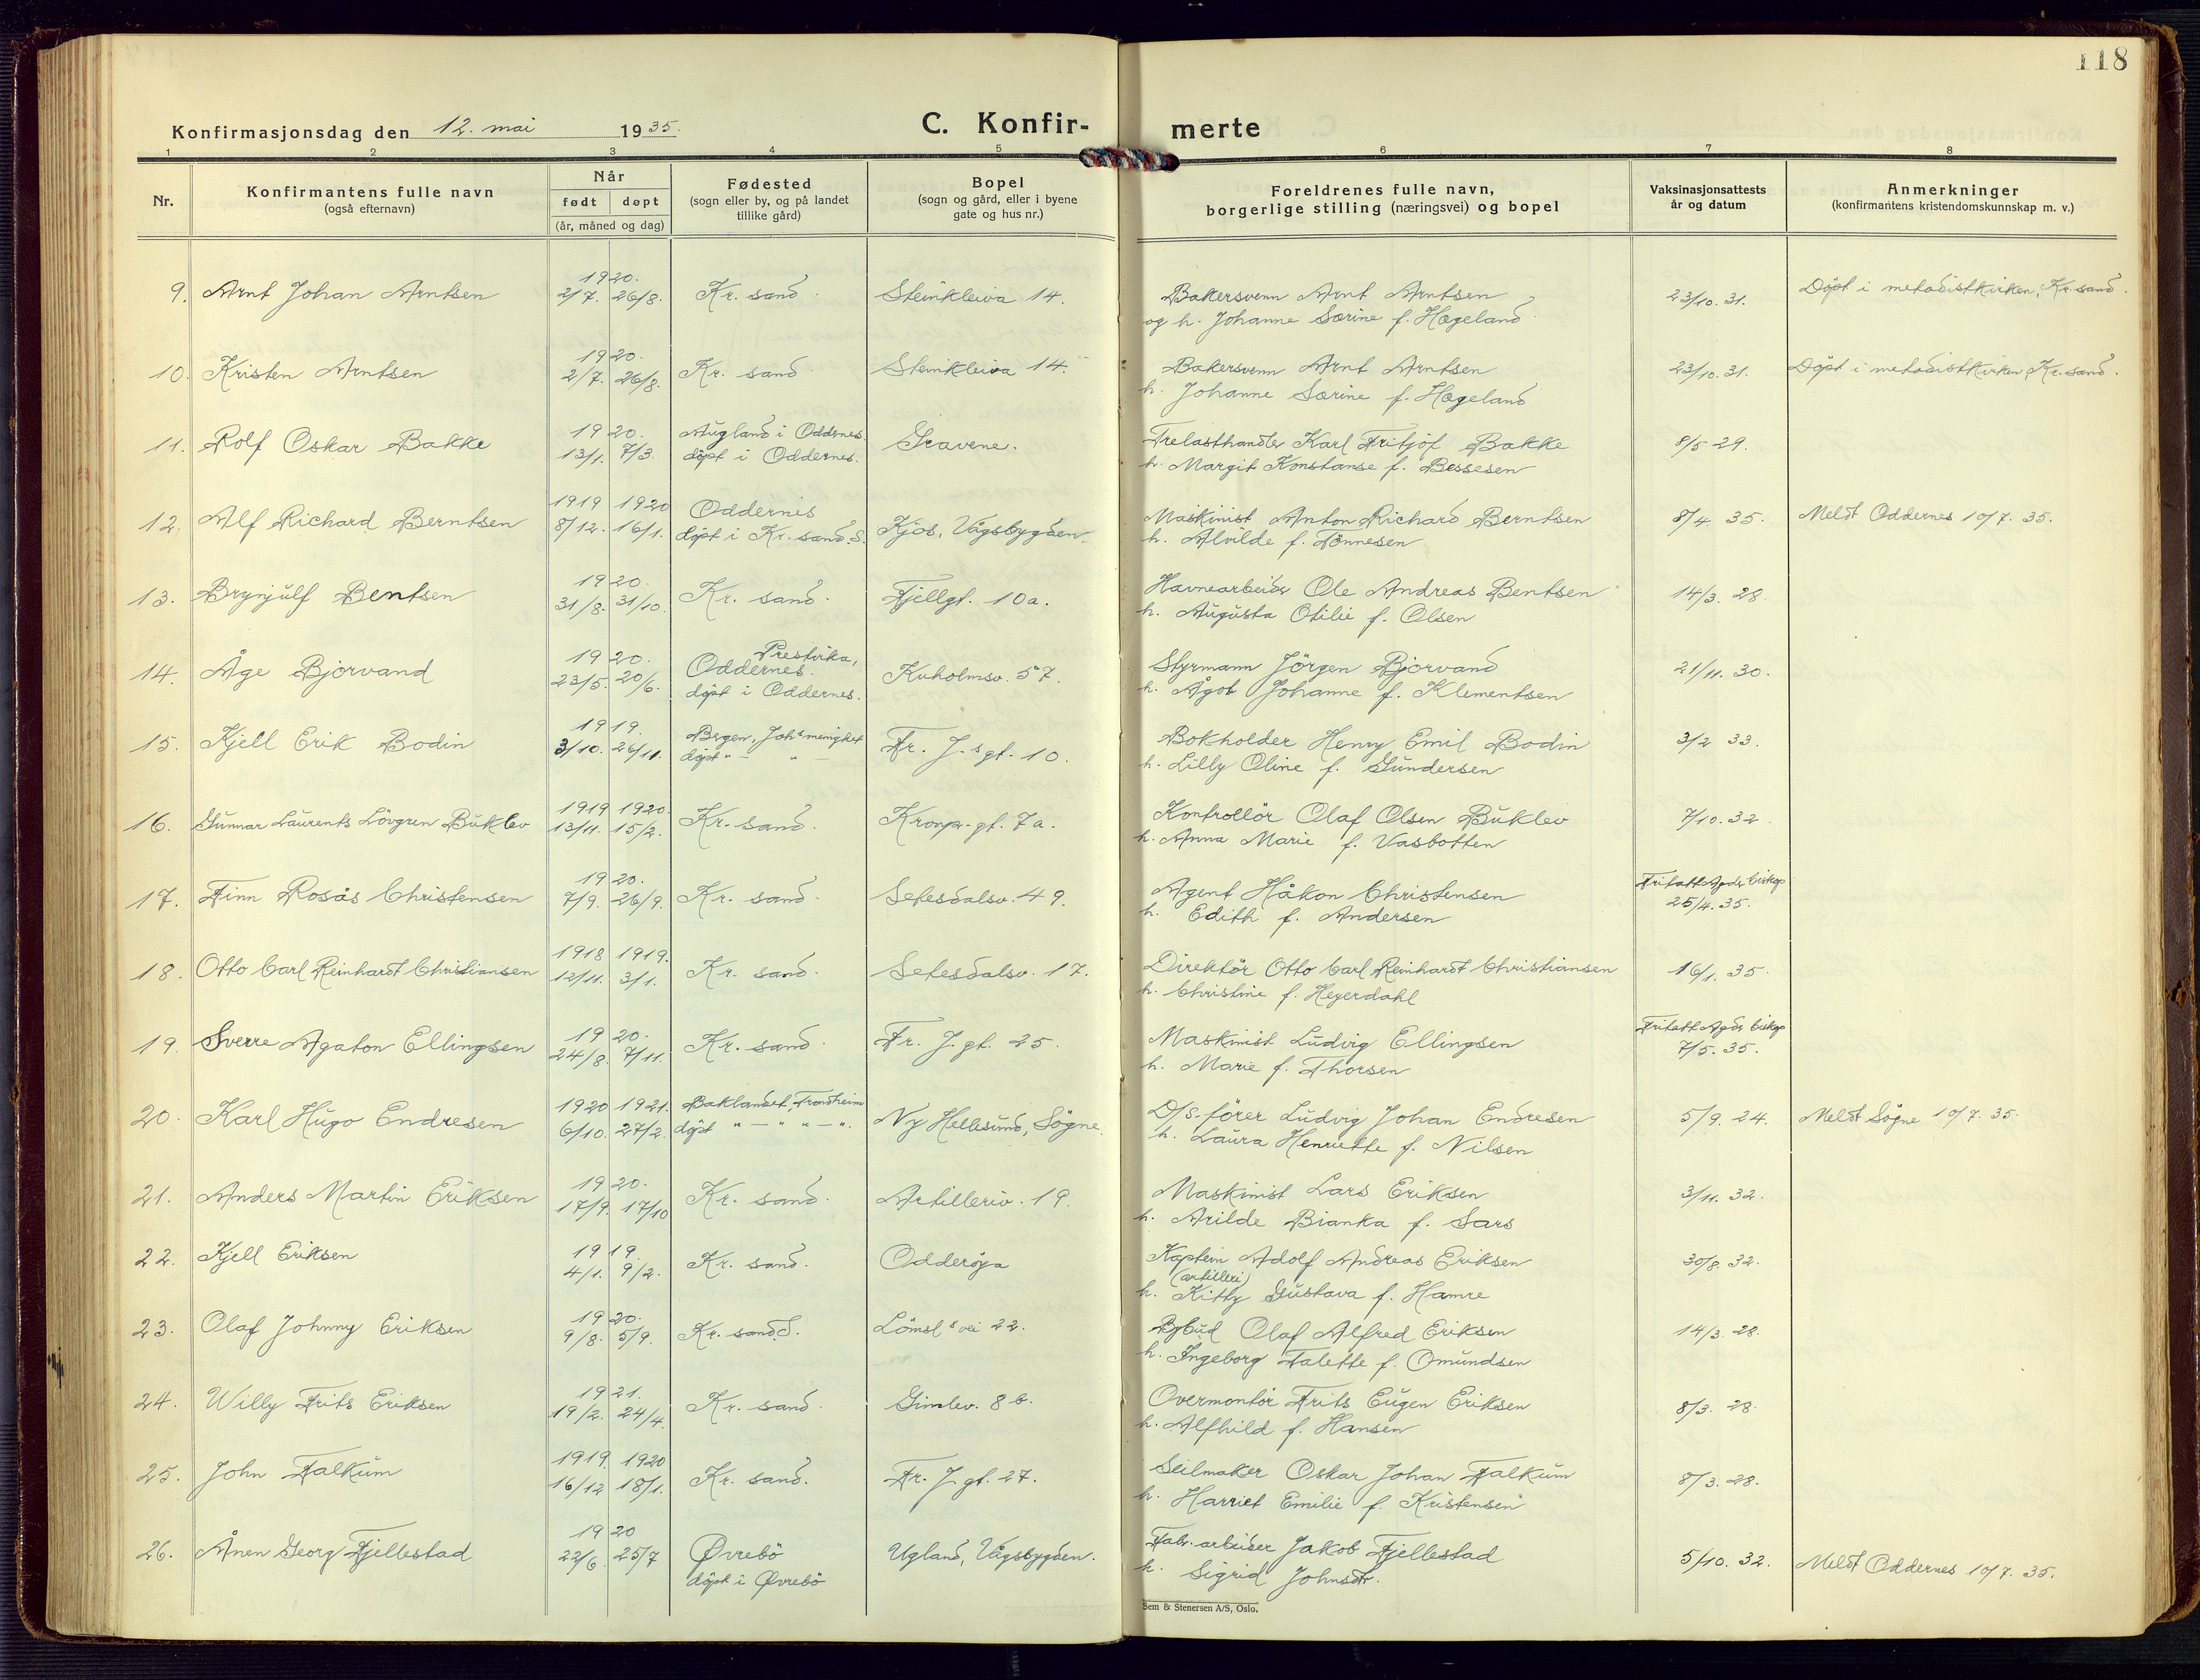 118
Konfirmasjonsdag den 12. mai 1935.
C. Konfir- merte
1 2 3 4 5 6 7 8
Nr.
Konfirmantens fulle navn
(også efternavn)
Når
født døpt
(år, måned og dag)
Fødested
(sogn eller by, og på landet
tillike gård)
Bopel
(sogn og gård, eller i byene
gate og hus nr.)
Foreldrenes fulle navn,
borgerlige stilling (næringsvei) og bopel
Vaksinasjonsattests
år og datum
Anmerkninger
(konfirmantens kristendomskunnskap m. v.)
1920.
9. Arnt Johan Arntsen 2/7. 26/8. Kr. sand. Steinkleiva 14. Bakersvenn Arnt Arntsen 23/10. 31. Döpt i metodistkirken, Kr. sand.
og h. Johanne Sørine f. Hægeland
1920.
10. Kristen Arntsen 2/7. 26/8. Kr. sand Steinkleiva 14. Bakersvenn Arnt Arntsen 23/10. 31. Döpt i metodistkirken, Kr. sand.
h. Johanne Sørine f. Hægeland
1920. Augland i Oddernes.
11. Rolf Oskar Bakke 13/1. 7/3. döpt i Oddernes. Gravene. Trelasthandler Karl Fritjof Bakke 8/5 29.
h. Margit Konstanse f. Bessesen
1919 1920 Oddernes
12. Alf Richard Berntsen 8/12. 16/1. döpt i Kr. sand. S. Kjos, Vågsbygden. Maskinist Anton Richard Berntsen 8/4 35. Meldt Oddernes 10/7. 35.
h. Alvilde f. Tönnesen
1920.
13. Brynjulf Bentsen 31/8. 31/10. Kr. sand. Fjellgt. 10a. Havnearbeider Ole Andreas Bentsen 14/3. 28.
h. Augusta Otilie f. Olsen
1920. Prestvika,
14. Åge Bjorvand 23/5. 20/6. Oddernes. Kuholmsv. 57. Styrmann Jörgen Bjorvand 21/11. 30.
döpt i Oddernes. h. Ågot Johanne f. Klementsen
1919. Bergen, Joh.s menighet
15. Kjell Erik Bodin 3/10. 26/11. döpt " — " — Fr. J.s gt. 10. Bokholder Henry Emil Bodin 3/2 33.
h. Lilly Oline f. Gundersen
1919 1920.
16. Gunnar Laurents Lövgren Buklev 13/11. 15/2. Kr. sand. Kronpr. gt. 7a. Kontrollör Olaf Olsen Buklev 7/10. 32.
h. Anna Marie f. Vasbotten
1920. Fritatt Agder biskop
17. Finn Rosås Christensen 7/9. 26/9. Kr. sand. Setesdalsv. 49. Agent Håkon Christensen 25/4. 35.
h. Edith f. Andersen
1918 1919.
18. Otto Carl Reinhardt Christiansen 12/11. 3/1. Kr. sand. Setesdalsv. 17. Direktör Otto Carl Reinhardt Christiansen 16/1. 35.
h. Christine f. Heyerdahl
1920. Fritatt Agder biskop
19. Sverre Agaton Ellingsen 24/8. 7/11. Kr. sand. Fr. J. gt. 25. Maskinist Ludvig Ellingsen 7/5. 35.
h. Marie f. Thorsen
1920 1921. Baklandet, Trondheim
20. Karl Hugo Endresen 6/10. 27/2. döpt " — " " — ". Ny Hellesund, Sögne. D/S-förer Ludvig Johan Endresen 5/9. 24. Meldt Sögne 10/7. 35.
h. Laura Henriette f. Nilsen
1920.
21. Anders Martin Eriksen 17/9. 17/10 Kr. sand. Artilleriv. 19. Maskinist Lars Eriksen 3/11. 32.
h. Arilde Bianka f. Sars
1919.
22. Kjell Eriksen 4/1. 9/2. Kr. sand. Odderöya Kaptein Adolf Andreas Eriksen 30/8. 32.
(artilleri)
h. Kitty Gustava f. Hamre
1920.
23. Olaf Johnny Eriksen 9/8. 5/9. Kr. sand. S. Lömsl.s vei 22. Bybud Olaf Alfred Eriksen 14/3. 28.
h. Ingeborg Talette f. Omundsen
1921.
24. Willy Frits Eriksen 19/2. 24/4. Kr. sand. Gimlev. 8 b. Overmontör Frits Eugen Eriksen 8/3. 28.
h. Alfhild f. Hansen
1919. 1920
25. John Falkum 16/12 18/1. Kr. sand. Fr. J. gt. 27. Seilmaker Oskar Johan Falkum 8/3. 28.
h. Harriet Emilie f. Kristensen
1920
26. Ånen Georg Fjellestad 22/6. 25/7 Øvrebö Ugland, Vågsbygden. Fabr. arbeider Jakob Fjellestad 5/10. 32. Meldt Oddernes 10/7. 35.
döpt i Øvrebö h. Sigrid Johnsdtr.
Sem & Stenersen A/S, Oslo.